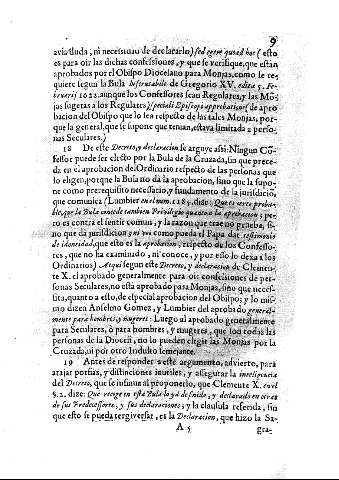 9
avia duda, ni necessidad de declararlo) sed egere quoad hoc (esto
es para oir dichas confessiones, y que se verifique, que estàn
aprobados por el Obispo Diocesano para Monjas, como se re-
quiere segun la Bula Inscrutabile de Gregorio XV. edita 5. Fe-
bruarij 1622. aunque los Confessores sean Regulares, y las Mo-
jas sugetas a los Regulares) speciali Episcopi approbatione (de apro
bacion del Obispo que lo sea respecto de las tales Monjas, por-
que la general, que se supone que tenian, estava limitada a perso-
nas Seculares.)
18 De este Decreto, y declaracion se arguye assi: Ningun Cō-
fessor puede ser electo por la Bula de la Cruzada, sin que prece-
da en el aprobacion del Ordinario respecto de las personas que
lo eligen, porque la Bula no dà la aprobacion, sino que la supo-
ne como prerequisito necessario, y fundamento de la jurisdicio,
que comunica (Lumbier en el num. 1185. dize: Que es cierto proba-
ble, que la Bula concede tambien Privilegio quanto a la aprobacion; pe-
ro es contra el comun, y la razon que trae no prueba, si-
no que dà jurisdicion qui no como pueda el Papa dar testimonio
de idoneidad, que esto es la aprobacion, respecto de los Confesso-
res, que no ha examinado, ni conoce, y por esso lo dexa a los
Ordinarios) Atqui segun este Decreto, y declaracion de Clemen-
te X. el aprobado generalmente para oir confessiones de per-
sonas Seculares, no està aprobado para Monjas, sino que necessi-
sita, quanto a esto, de especial aprobacion del Obispo; y lo mis-
mo dizen Anselmo Gomez, y Lumbier del aprobado general-
mente para hombres, y mugeres: Luego al aprobado generalmente
para Seculares, ò para hombres, y mugeres, que son todas las
personas de la Diocesi, no lo pueden elegir las Monjas por la
Cruzada, ni por otro Indulto semejante.
19 Antes de responder a este argumento, advierto, para
atajar porfias, y distinciones inutiles, y assegurar la inteligencia
del Decreto, que se insinua al proponerlo, que Clemente X. en el
§. 2. dize: Que recoge en esta Bula lo yà definido, y declarado en otras
de sus Predecessores, y sus declaraciones; y la clausula referida, sin
que esto se pueda tergiversar, es la Declaracion, que hizo la Sa-
A 5 gra-